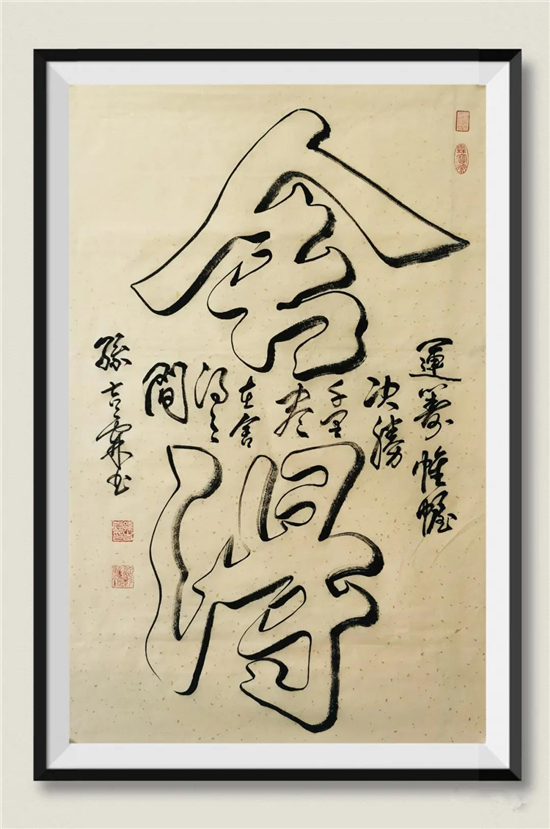 舍得
運籌帷幄
决勝
千里
尽
在舍
得之
間
孫吉霖书